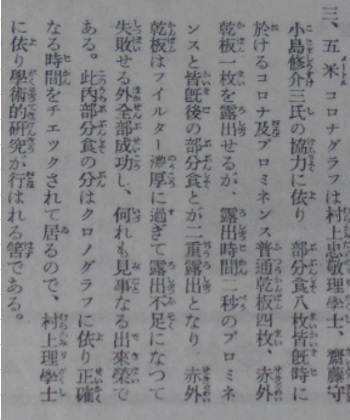 三、五米コロナグラフは村上忠敬理學士、齋藤守
小島修介三氏の協力に依り 部分食八枚皆旣時に
於けるコロナ及プロミネンス普通乾板四枚、赤外
乾板一枚を露出せるが、露出時間二秒のプロミネ
ンスと皆旣後の部分食とが二重露出となり 赤外
乾板はフイルター濃厚に過ぎて露出不足になつて
失敗せる外全部成功し、何れも見事なる出來榮で
ある。此內部分食の分はクロノグラフに依り正確
なる時間をチエックされて居るので、村上理學士
に依り學術的硏究が行はれる筈である。